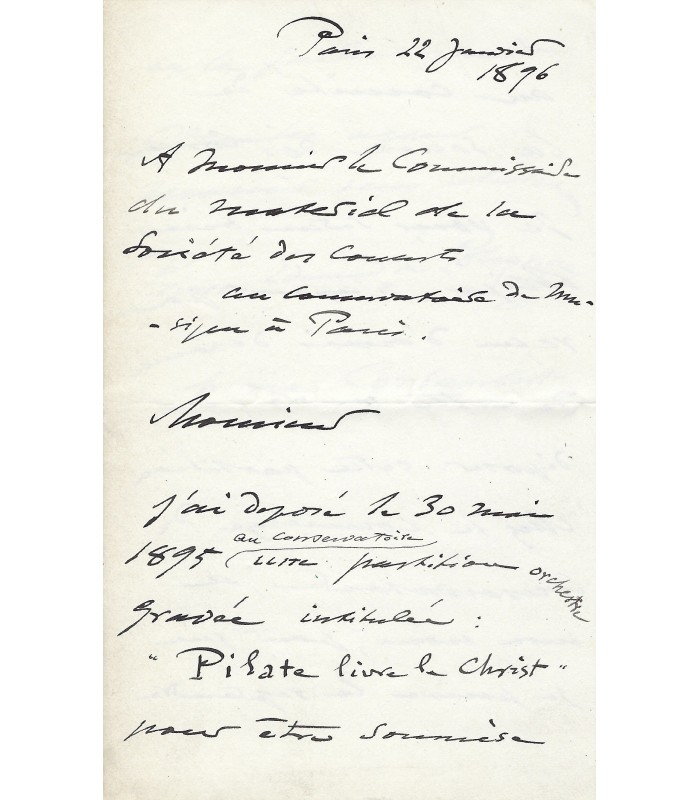 Paris 22 Janvier
1896
A Monsieur le Commissaire
du materiel de la
Société des Concerts
au conservatoire de Mu-
-sique à Paris.
Monsieur
J'ai déposé le 30 mai
au conservatoire
1895 une partition orchestre
gravée intitulée :
" Pilate livre le Christ "
pour être soumise